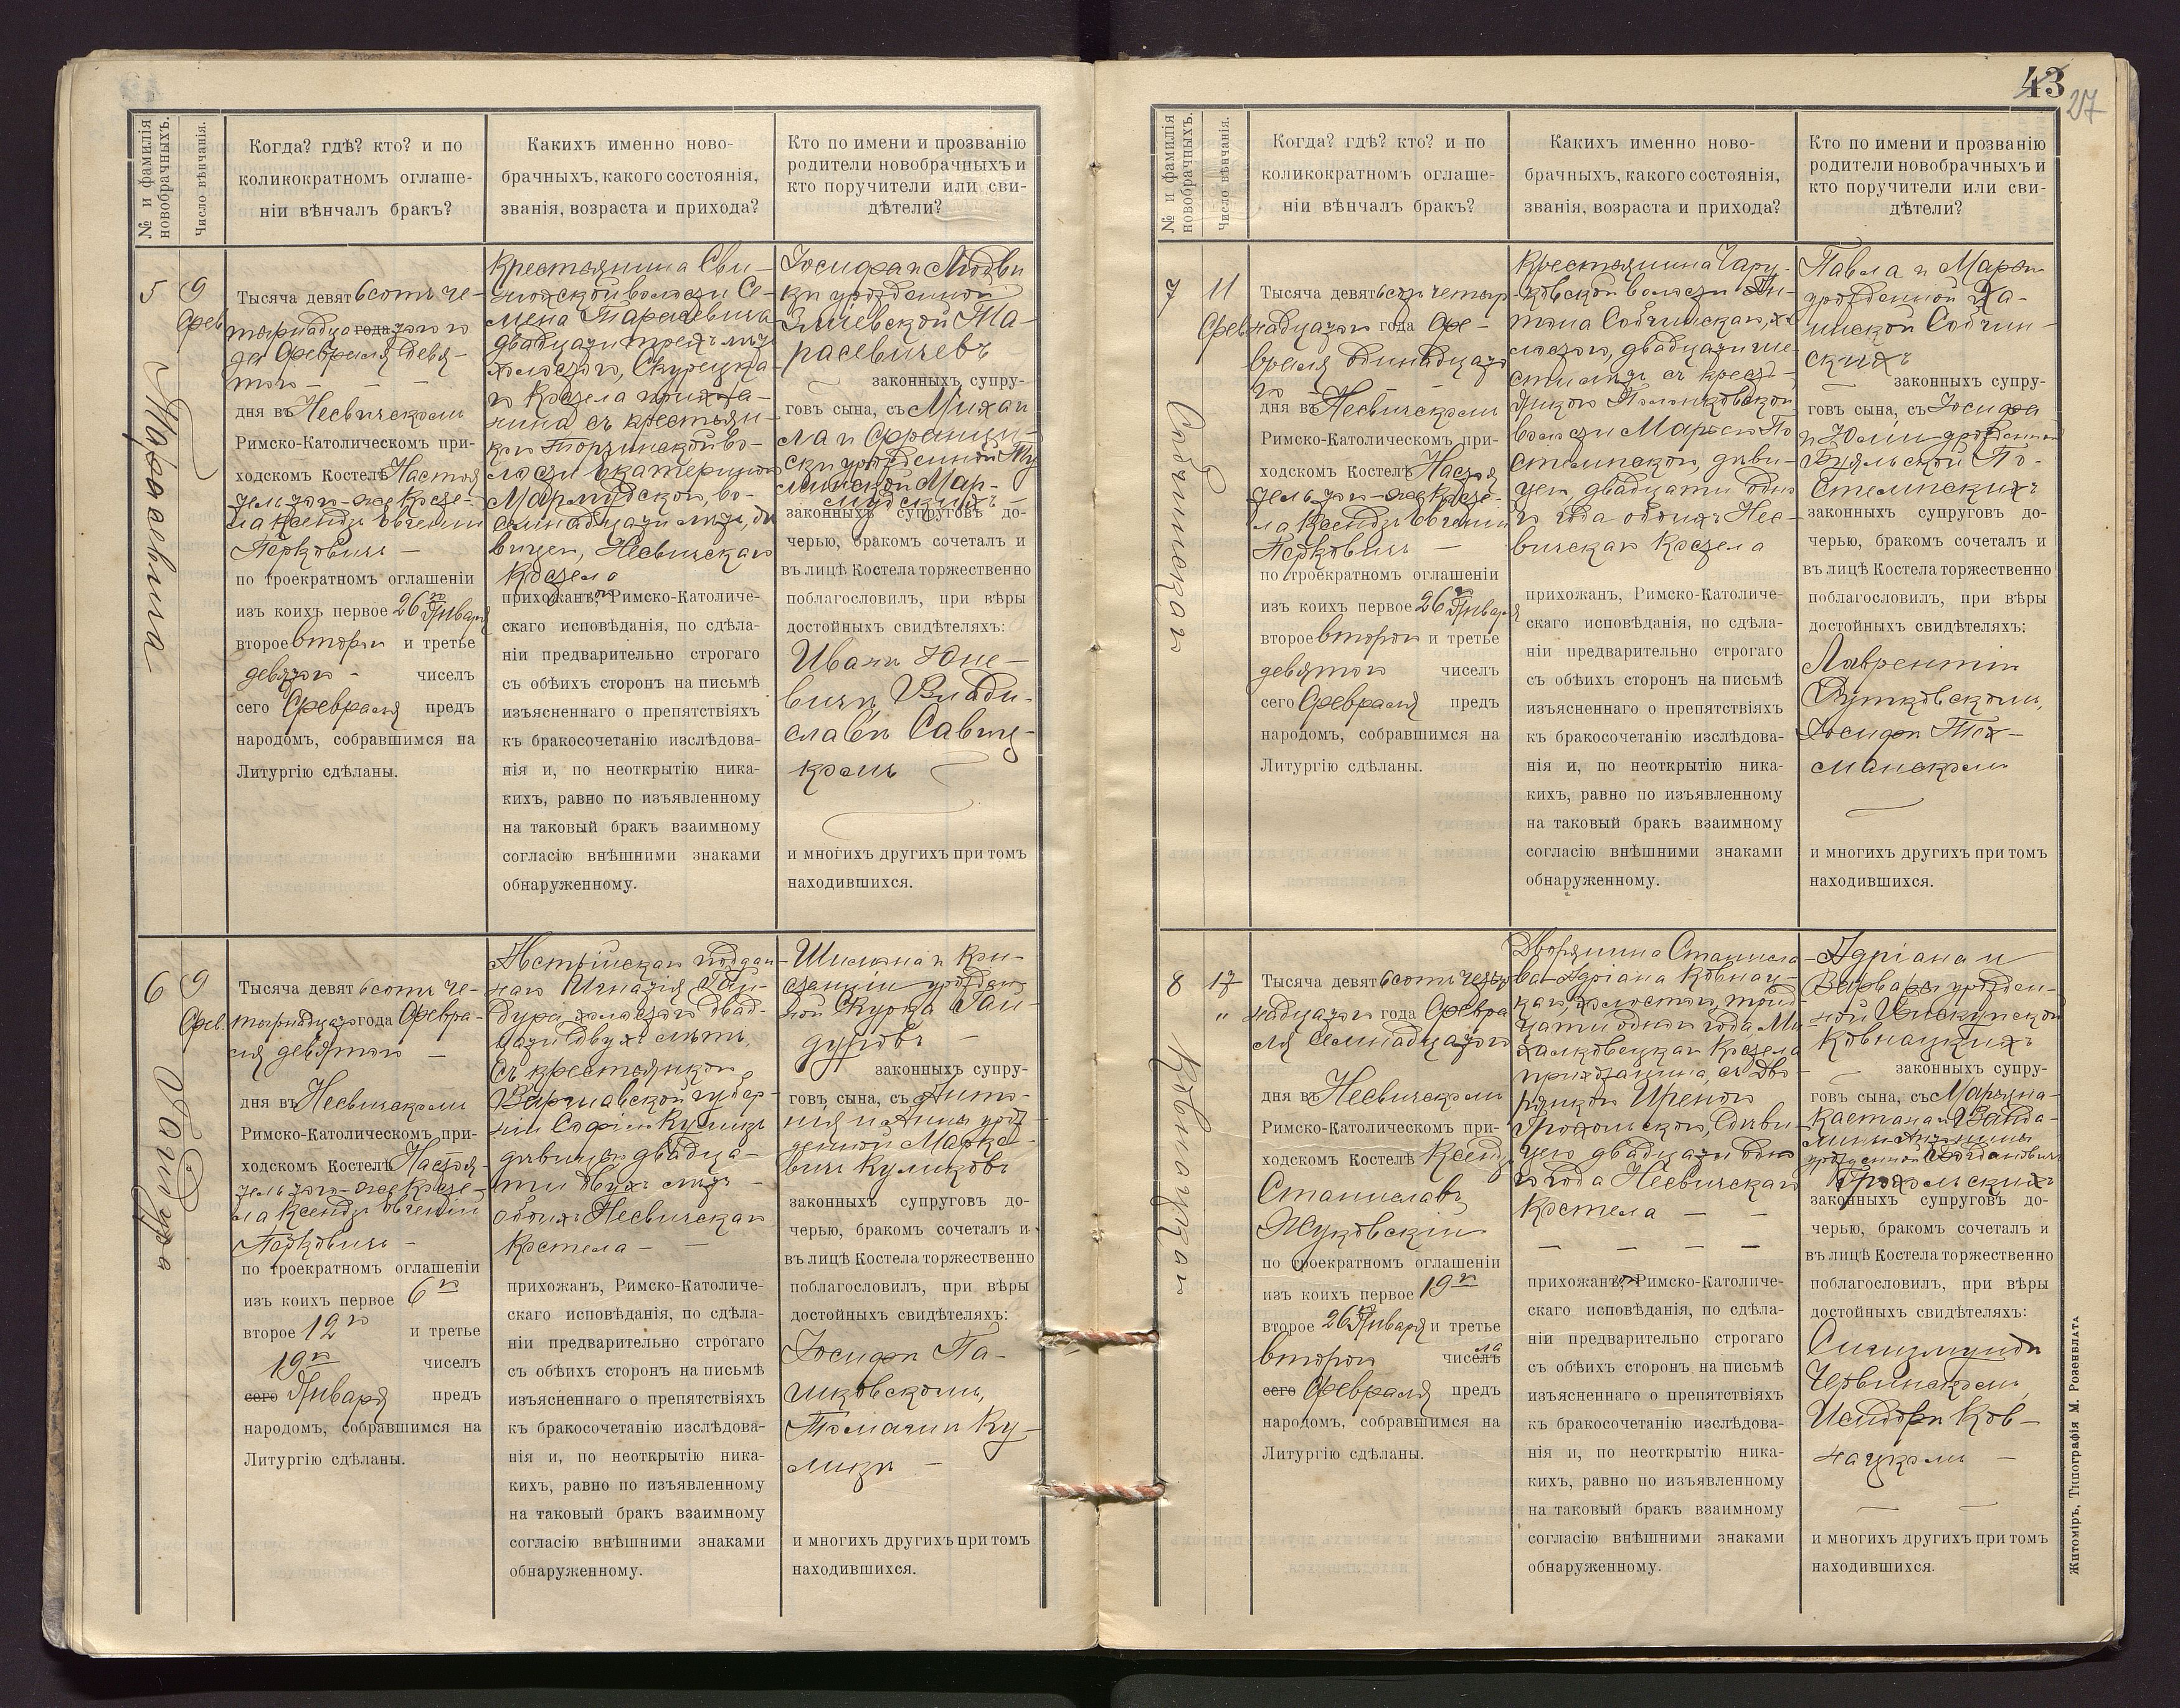 43
27
№ и фамилія новобрачныхъ.
Число вѣнчанія.
Когда? гдѣ? кто? и по
коликократномъ оглаше-
ніи вѣнчалъ бракъ?
Какихъ именно ново-
брачныхъ, какого состоянія,
званія, возраста и прихода?
Кто по имени и прозванію
родители новобрачныхъ и
кто поручители или сви-
дѣтели?
5
9
Февр.
Тарасевича
Тысяча девятьсотъ че-
тырнадца года таго го
да Февраля девя-
таго
дня въ Несвичскомъ
Римско-Католическомъ при-
ходскомъ Костелѣ Настоя
тель того-же Косте-
ла Ксендзъ Евгеній
Перковичъ
по троекратномъ оглашеніи
изъ коихъ первое 26го Января
второе второго и третье
девятого чиселъ
сего Февраля предъ
народомъ, собравшимся на
Литургію сдѣланы.
Крестьянина Сви-
нюхской волости Се-
мена Тарасевича
двадцати трехъ лѣтъ
холостого, Скурецка-
го Костела прихожа-
нина съ крестьян-
кой Торчинской во-
лости Екатериной
Мармудской, во-
семнадцати лѣтъ, дѣ
вицей, Несвичскаго
Костела
прихожанъ, Римско-Католиче-
скаго исповѣданія, по сдѣла-
ніи предварительно строгаго
съ обѣихъ сторонъ на письмѣ
изъясненнаго о препятствіяхъ
къ бракосочетанію изслѣдова-
нія и, по неоткрытію ника-
кихъ, равно по изъявленному
на таковый бракъ взаимному
согласію внѣшними знаками
обнаруженному.
Іосифа и Людви
ки урожденной
Тарасевичевъ
законныхъ супру-
говъ сына, съ Михаи
ла и Франциш-
ки урожденной
Мармудскихъ
законныхъ супруговъ до-
черью, бракомъ сочеталъ и
въ лицѣ Костела торжественно
поблагословилъ, при вѣры
достойныхъ свидѣтеляхъ:
Иванѣ Юце-
вичѣ, Влади-
славѣ Савиц-
комъ
и многихъ другихъ при томъ
находившихся.
6
9
Февр.
Гандура
Тысяча девятьсотъ че-
тырнадцато года Февра-
ля девятого
дня въ Несвичскомъ
Римско-Католическомъ при-
ходскомъ Костелѣ Настоя-
тель того-же Косте-
ла Ксендзъ Евгеній
Перковичъ
по троекратномъ оглашеніи
изъ коихъ первое 6го
второе 12го и третье
19го чиселъ
сего Января предъ
народомъ, собравшимся на
Литургію сдѣланы.
Австрійскаго поддан-
наго Игнатія Ган-
дура, холостого двад-
цати двухъ лѣтъ,
съ крестьянкой
Варшавской губер-
ніи Софіей Кулизъ
дѣвицей двадца-
ти двухъ лѣтъ
обоихъ Несвичскаго
Костела
прихожанъ, Римско-Католиче-
скаго исповѣданія, по сдѣла-
ніи предварительно строгаго
съ обѣихъ сторонъ на письмѣ
изъясненнаго о препятствіяхъ
къ бракосочетанію изслѣдова-
нія и, по неоткрытію ника-
кихъ, равно по изъявленному
на таковый бракъ взаимному
согласію внѣшними знаками
обнаруженному.
урожден
ной Курда Ган-
дуровъ
законныхъ супру-
говъ сына, съ Анто-
нія и Анны урож
денной Марке-
вичъ
законныхъ супруговъ до-
черью, бракомъ сочеталъ и
въ лицѣ Костела торжественно
поблагословилъ, при вѣры
достойныхъ свидѣтеляхъ:
Іосифѣ Па-
шковскомъ,
Томашѣ Ку-
лизѣ
и многихъ другихъ при томъ
находившихся.
№ и фамилія новобрачныхъ.
Число вѣнчанія.
Когда? гдѣ? кто? и по
коликократномъ оглаше-
ніи вѣнчалъ бракъ?
Какихъ именно ново-
брачныхъ, какого состоянія,
званія, возраста и прихода?
Кто по имени и прозванію
родители новобрачныхъ и
кто поручители или сви-
дѣтели?
7
11
Февр.
Собчинскаго
Тысяча девятьсотъ четыр-
надцатого года Фе-
враля одинадцато
го
дня въ Несвичскомъ
Римско-Католическомъ при-
ходскомъ Костелѣ Настоя
тель того-же Косте-
ла Ксендзъ Евгеній
Перковичъ
по троекратномъ оглашеніи
изъ коихъ первое 26го Января
второе второго и третье
девятого чиселъ
сего Февраля предъ
народомъ, собравшимся на
Литургію сдѣланы.
Крестьянина Чару-
ковской волости Ан-
тона Собчинскаго, хо
лостого, двадцати ше-
сти лѣтъ съ кресть-
янкой Полонковской
волости Марьей По
стемпской, дѣви-
цей, двадцати одно
го года обоихъ Нес-
вичскаго Костела
прихожанъ, Римско-Католиче-
скаго исповѣданія, по сдѣла-
ніи предварительно строгаго
съ обѣихъ сторонъ на письмѣ
изъясненнаго о препятствіяхъ
къ бракосочетанію изслѣдова-
нія и, по неоткрытію ника-
кихъ, равно по изъявленному
на таковый бракъ взаимному
согласію внѣшними знаками
обнаруженному.
Павла и Марьи
урожденной
Собчин-
скихъ
законныхъ супру-
говъ сына, съ Іосифа
и Юліи урожденной
По-
стемпскихъ
законныхъ супруговъ до-
черью, бракомъ сочеталъ и
въ лицѣ Костела торжественно
поблагословилъ, при вѣры
достойныхъ свидѣтеляхъ:
Лаврентіи
Рутковскомъ,
Іосифѣ Тох-
манскомъ
и многихъ другихъ при томъ
находившихся.
8
17
"
Ковнацкаго
Тысяча девятьсотъ четыр
надцатого года Февра
ля семнадцатого
дня въ Несвичскомъ
Римско-Католическомъ при-
ходскомъ Костелѣ Ксендзъ
Станиславъ
Жуковскій
по троекратномъ оглашеніи
изъ коихъ первое 19го
второе 26го Января и третье
второго числа
сего Февраля предъ
народомъ, собравшимся на
Литургію сдѣланы.
Дворянина Станисла
ва-Адріана Ковнац-
каго, холостого, трид
цати одного года Ми
халковецкаго Костела
прихожанина, съ Дво-
рянкой Иреной
Грохольской, дѣви-
цею двадцати одно
го года Несвичскаго
Костела
прихожанъ, Римско-Католиче-
скаго исповѣданія, по сдѣла-
ніи предварительно строгаго
съ обѣихъ сторонъ на письмѣ
изъясненнаго о препятствіяхъ
къ бракосочетанію изслѣдова-
нія и, по неоткрытію ника-
кихъ, равно по изъявленному
на таковый бракъ взаимному
согласію внѣшними знаками
обнаруженному.
Адріана и
Варвары урожден-
ной Бискупской
Ковнацкихъ
законныхъ супру-
говъ сына, съ Марьяна-
Каетана и Ванда-
урожденной Богдановичъ
Грохольскихъ
законныхъ супруговъ до-
черью, бракомъ сочеталъ и
въ лицѣ Костела торжественно
поблагословилъ, при вѣры
достойныхъ свидѣтеляхъ:
Сигизмундѣ
Червинскомъ,
Исидорѣ Ков-
нацкомъ
и многихъ другихъ при томъ
находившихся.
Житоміръ, Типографія М. Розенблата